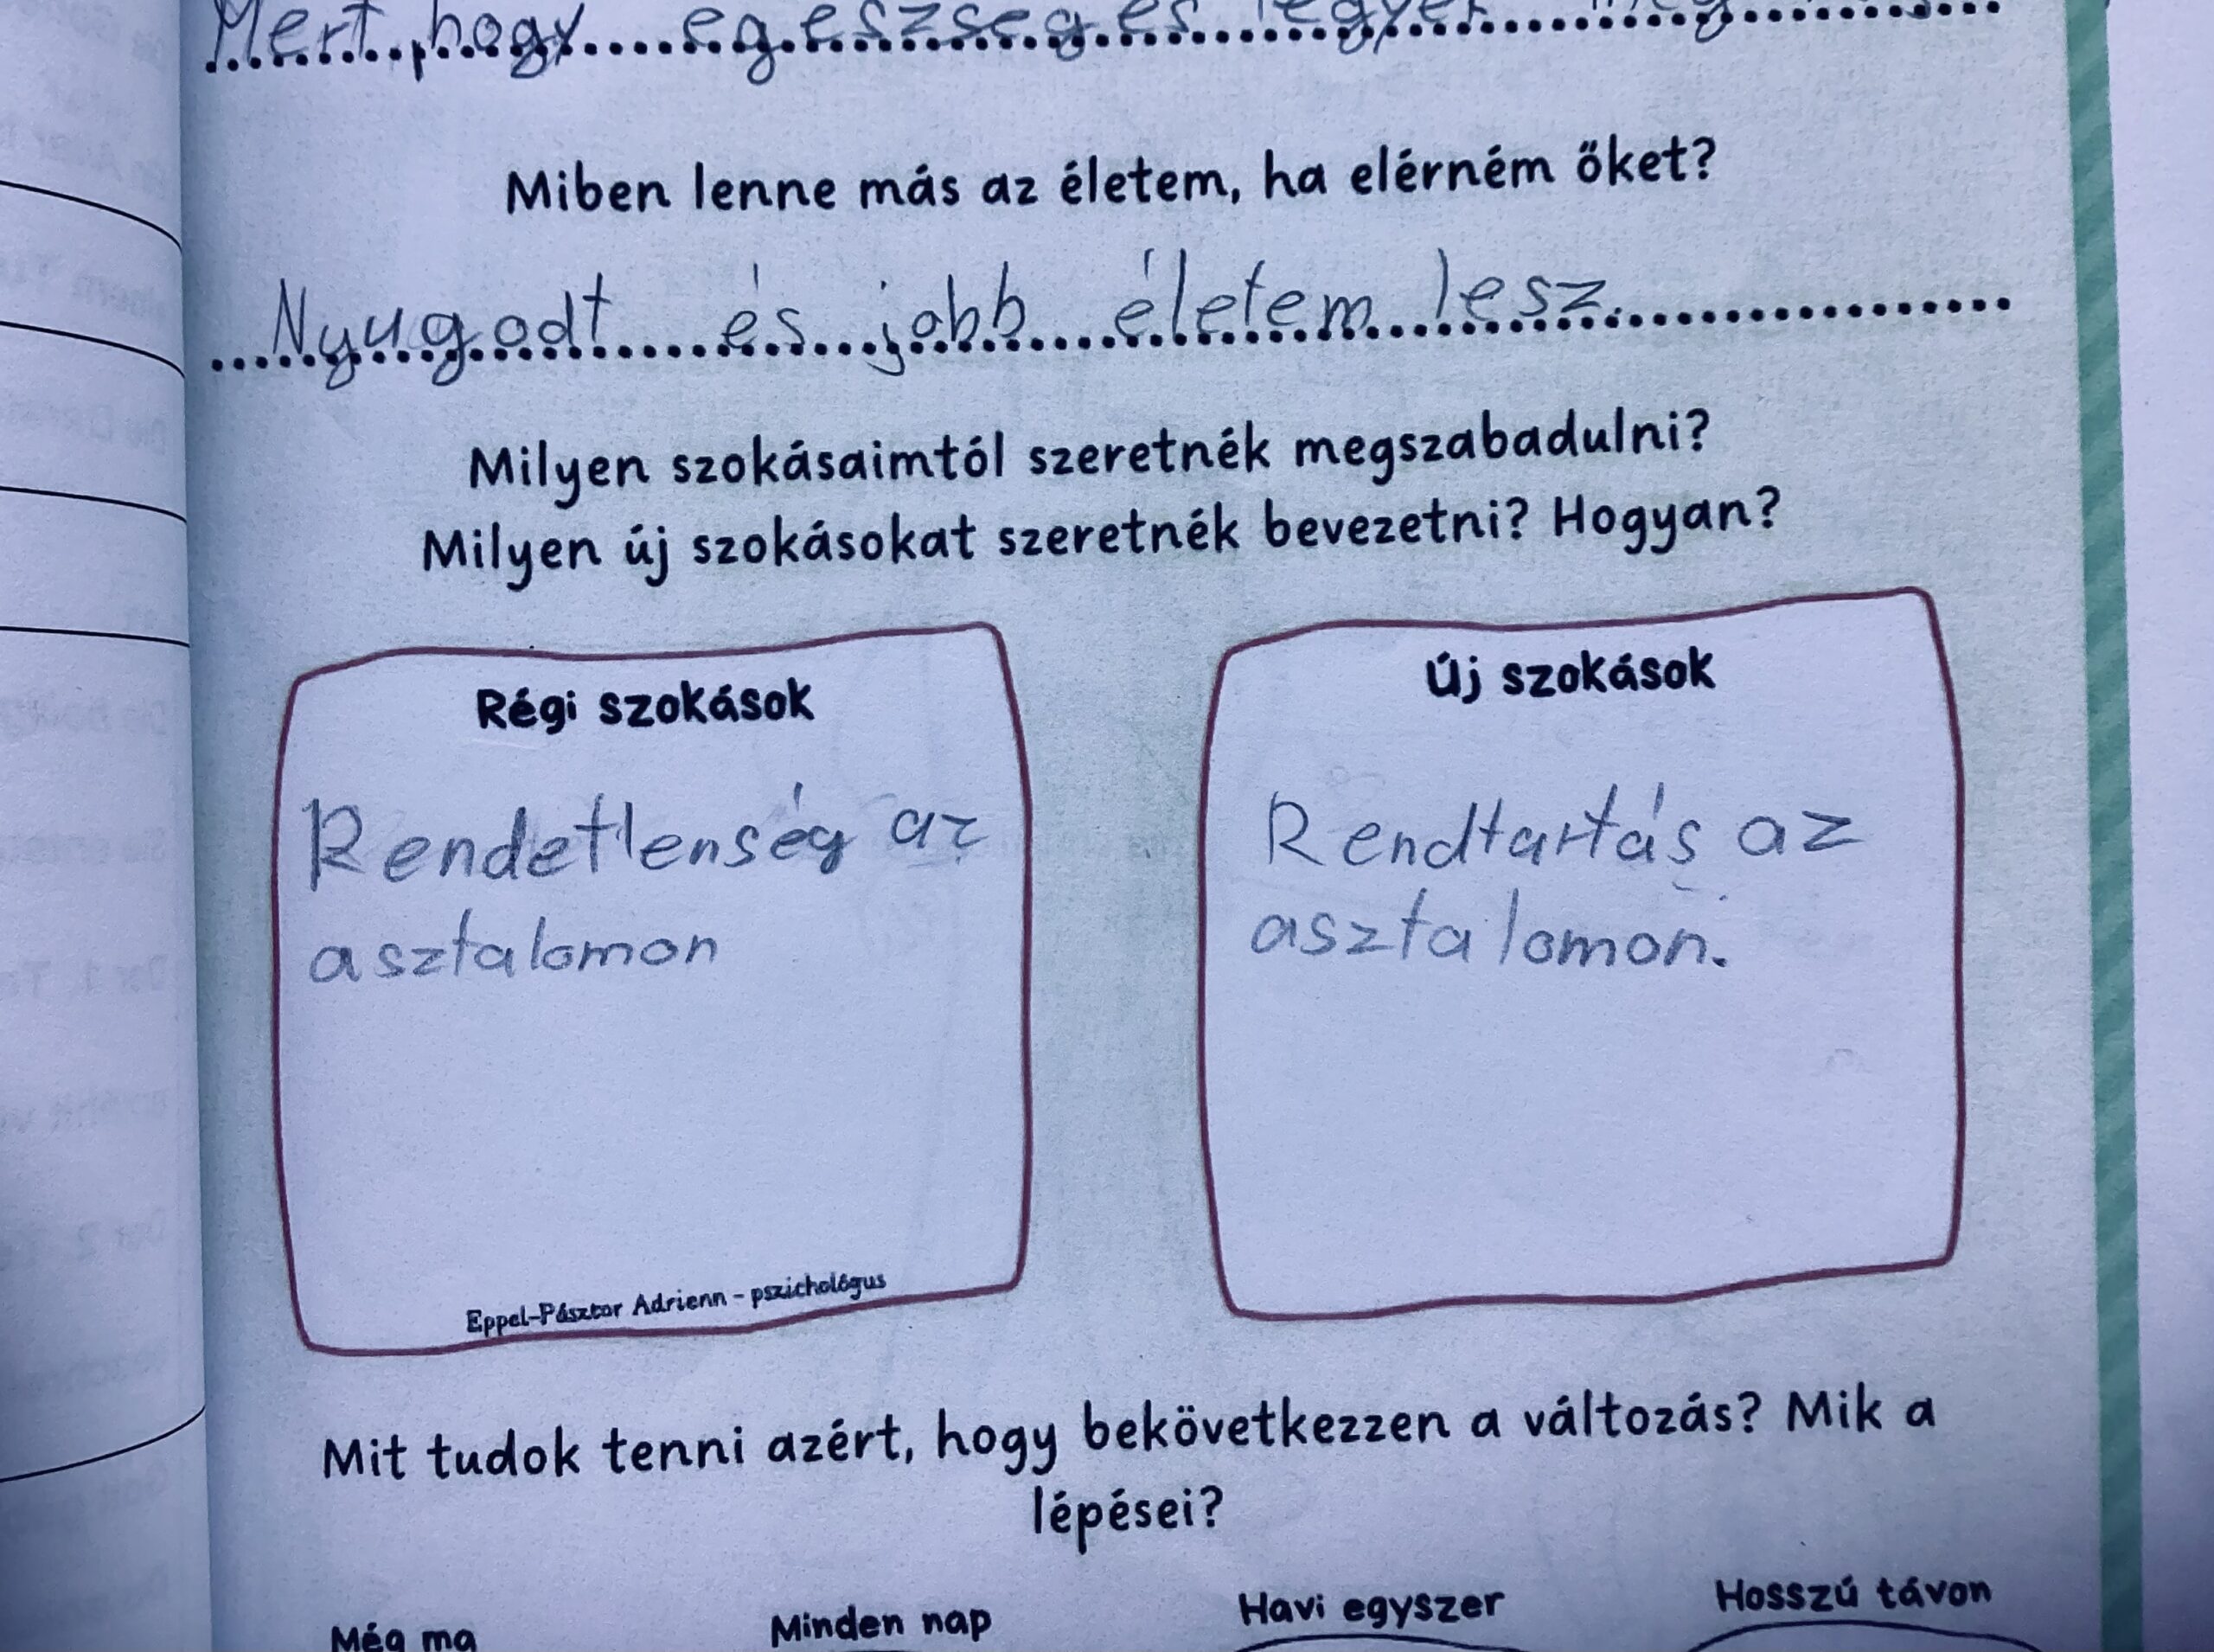 Mert, hogy egészséges legyek
Miben lenne más az életem, ha elérném őket?
Nyugodt és jobb életem lesz.
Milyen szokásaimtól szeretnék megszabadulni?
Milyen új szokásokat szeretnék bevezetni? Hogyan?
Régi szokások
Rendetlenség az
asztalomon
Eppel-Pásztor Adrienn - pszichológus
Új szokások
Rendtartás az
asztalomon.
Mit tudok tenni azért, hogy bekövetkezzen a változás? Mik a
lépései?
Még ma
Minden nap
Havi egyszer
Hosszú távon